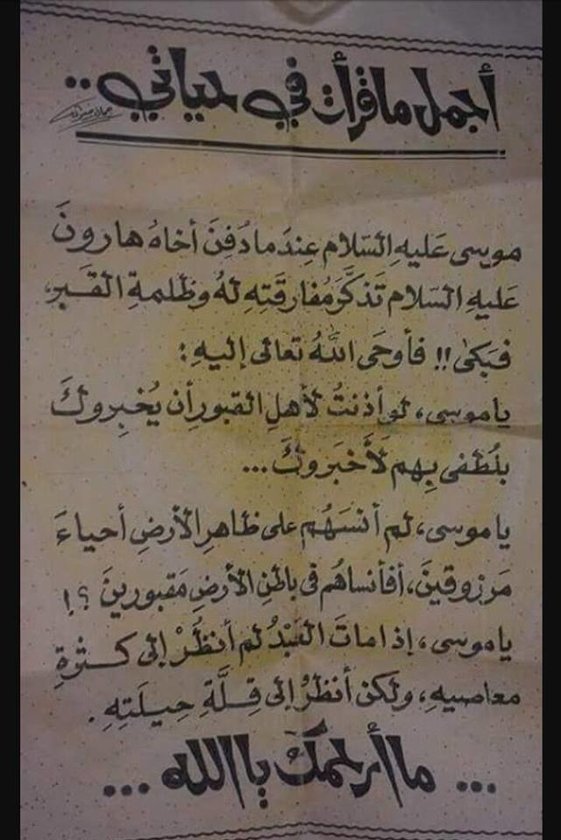 أجمل ما قرأت في حياتي..
موسى عَليهِ السَلام عِندَما دَفنَ أخاهُ هارونَ
عَليهِ السَلام تَذكَّرَ مُفارقَتِهِ لهُ وظلمةِ القَبرِ،
فبَكىٰ!! فأوحَى اللّٰهُ تعالى إليهِ:
ياموسى، لو أذنتُ لأهلِ القبورِ أن يُخبِروكَ
بلُطفى بِهم لَأَخبَروكَ...
ياموسى، لم أنسَهُم على ظاهرِ الأرضِ أحياءَ
مَرزوقينَ، أفأنساهُم فى باطنِ الأرضِ مَقبورينَ ؟!
ياموسى، إذا ماتَ العَبْدُ لم أنظُرْ إلى كَثرةِ
معاصيهِ، ولكن أنظرُ إلى قِلَّةِ حِيلَتِهِ.
... ما أرحمكَ يا الله ...